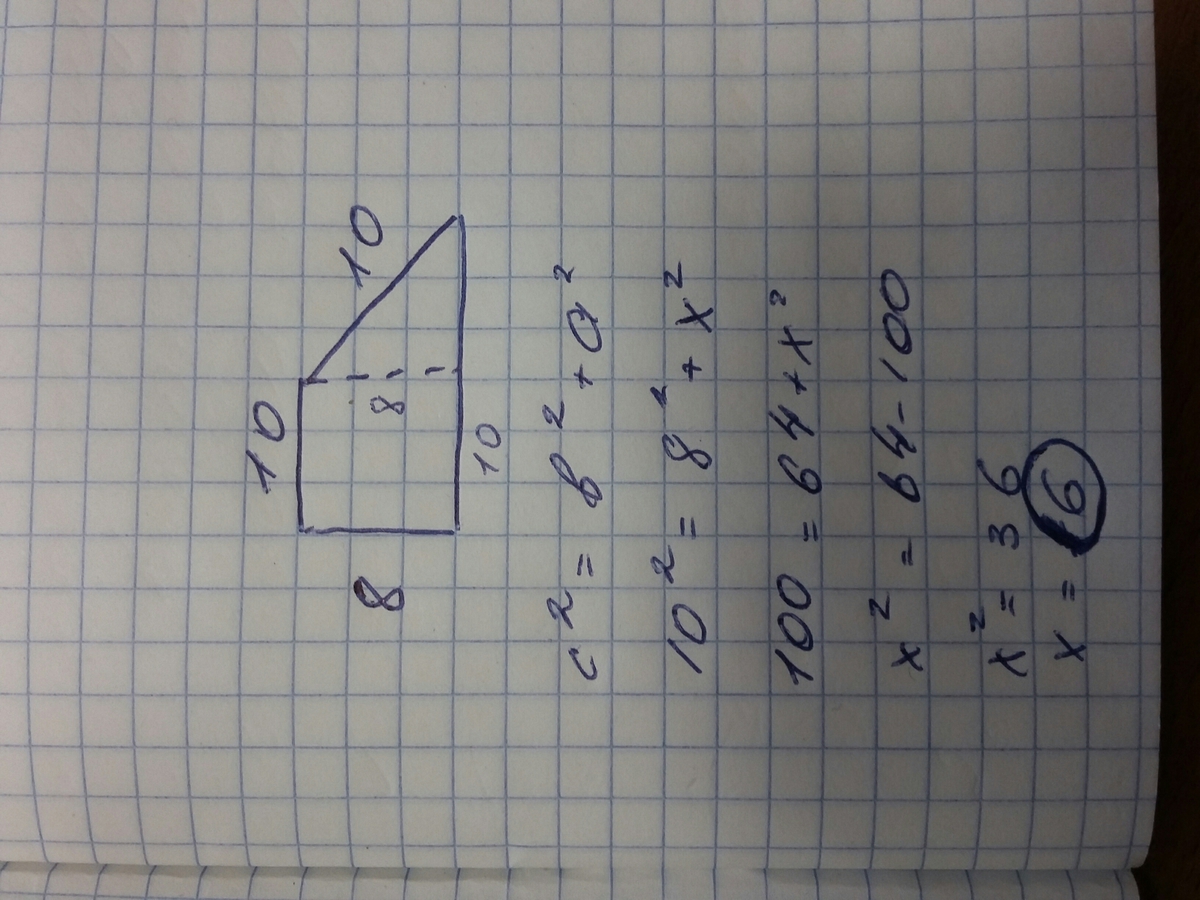 10
10
8
8
10
c² = b² + a²
10² = 8² + x²
100 = 64 + x²
x² = 64 - 100
x² = 36
x = 6